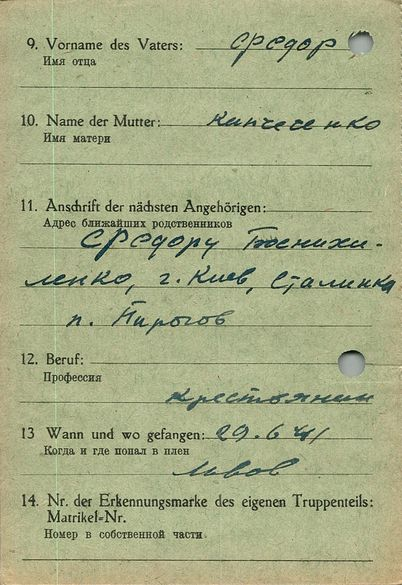 9. Vorname des Vaters: Федор
Имя отца
10. Name der Mutter: Кинчеченко
Имя матери
11. Anschrift der nächsten Angehörigen:
Адрес ближайших родственников
Федору
ленко, г. Киев, Сталинка
п. Пирогов
12. Beruf:
Профессия
Крестьянин
13 Wann und wo gefangen: 29.6 41
Когда и где попал в плен
Львов
14. Nr. der Erkennungsmarke des eigenen Truppenteils:
Matrikel=Nr.
Номер в собственной части.